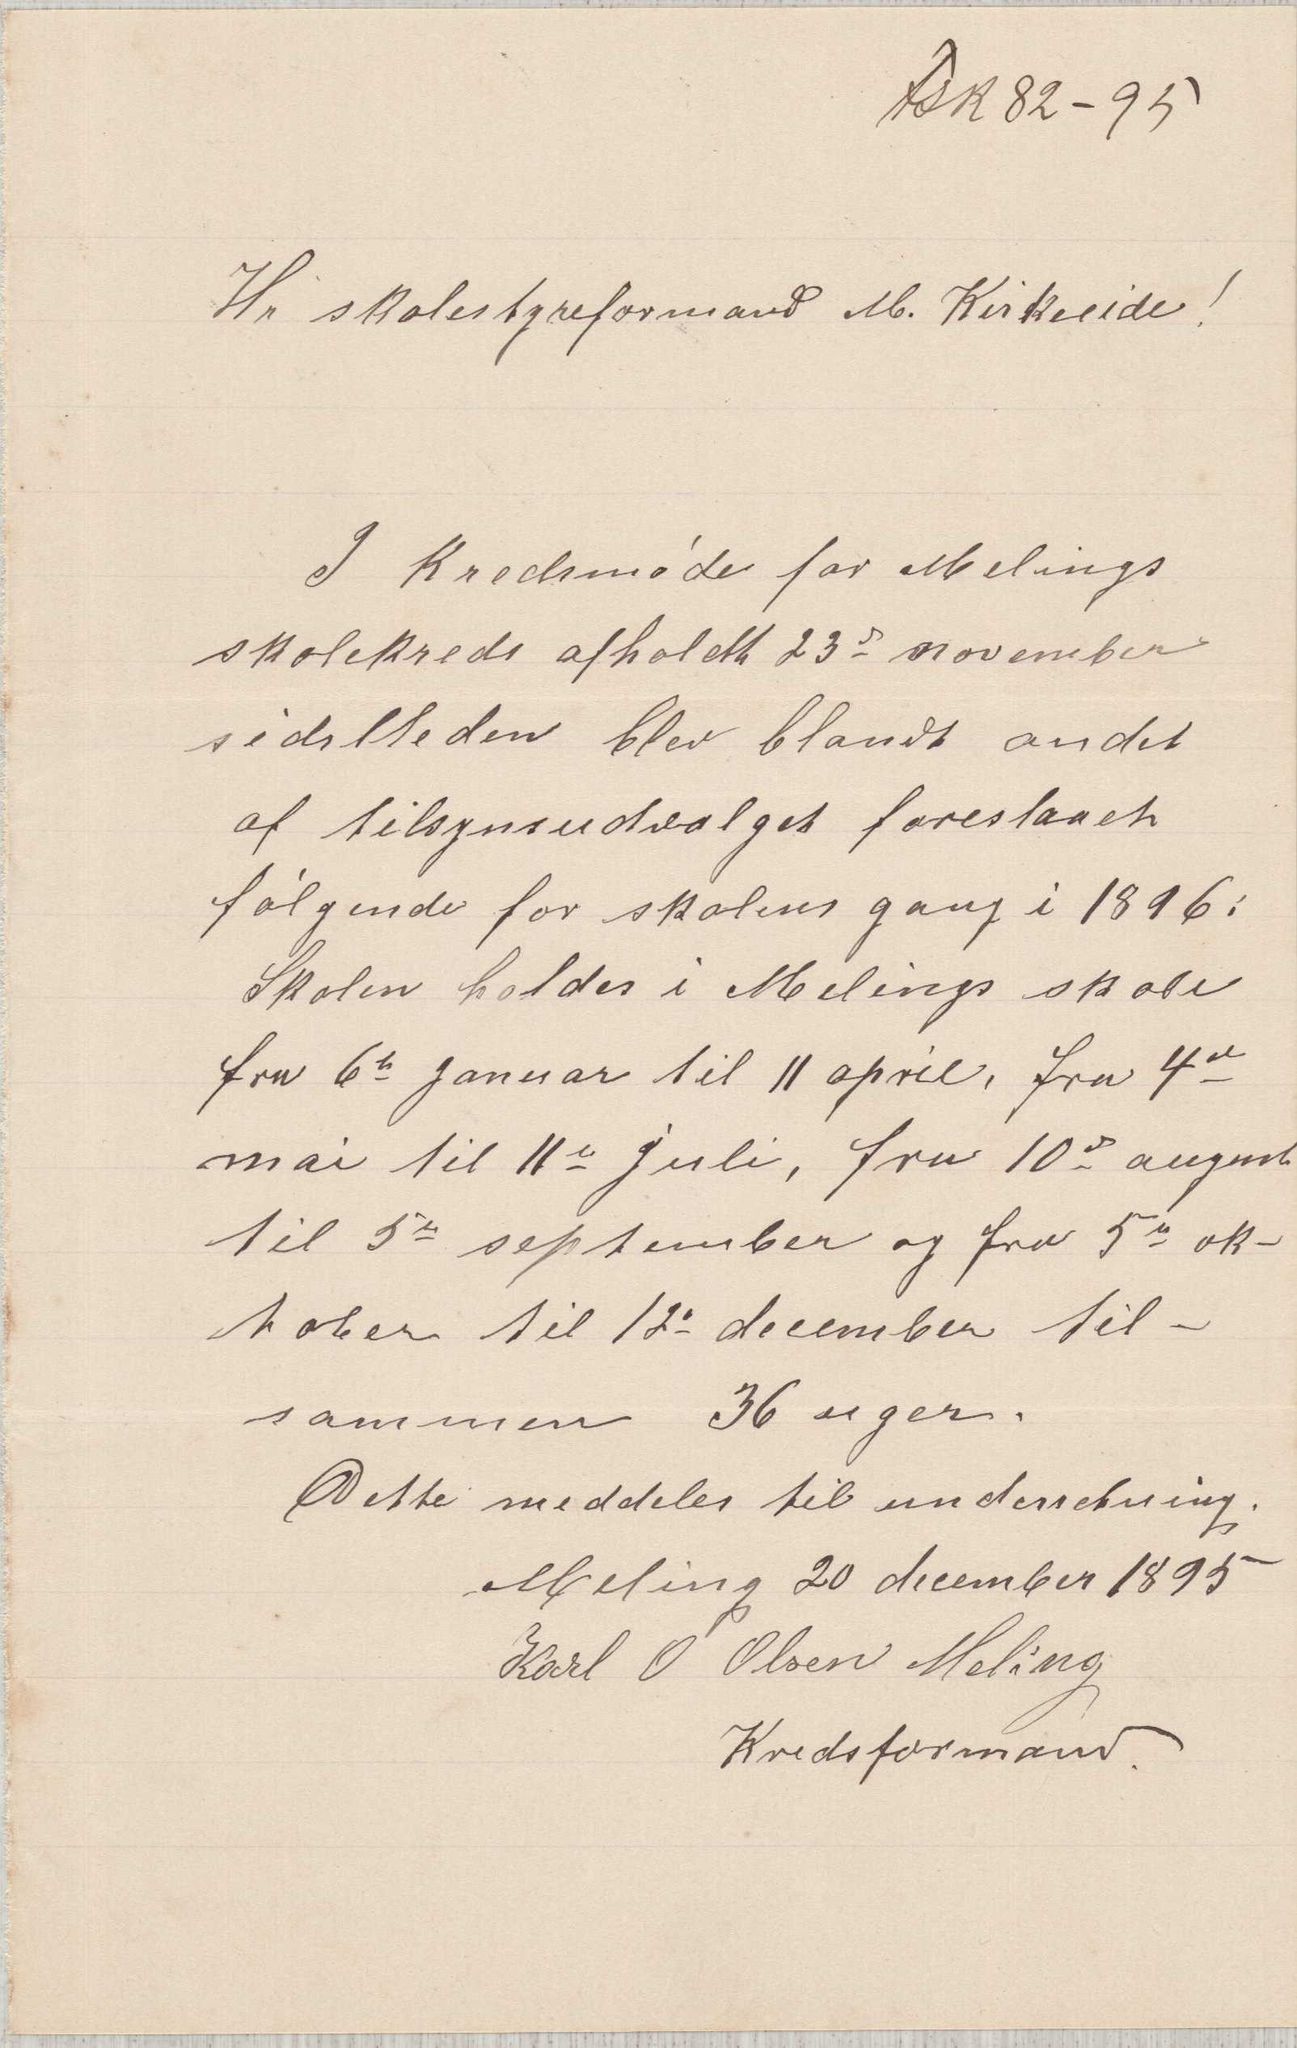 SK 82-95
Hr skolestyreformand M. Kirkeeide!
I Kredsmøde for Melings
skolekreds afholdt 23d november
sidstleden blev blandt andet
af tilsynsudvalget foreslaaet
følgende for skolens gang i 1896:
Skolen holdes i Melings skole
fra 6te januar til 11 april, fra 4de
mai til 11te juli, fra 10de august
til 5te september og fra 5te ok-
tober til 12te december til-
sammen 36 uger.
Dette meddeles til underretning.
Meling 20 december 1895
Karl O Olsen Meling
Kredsformand.